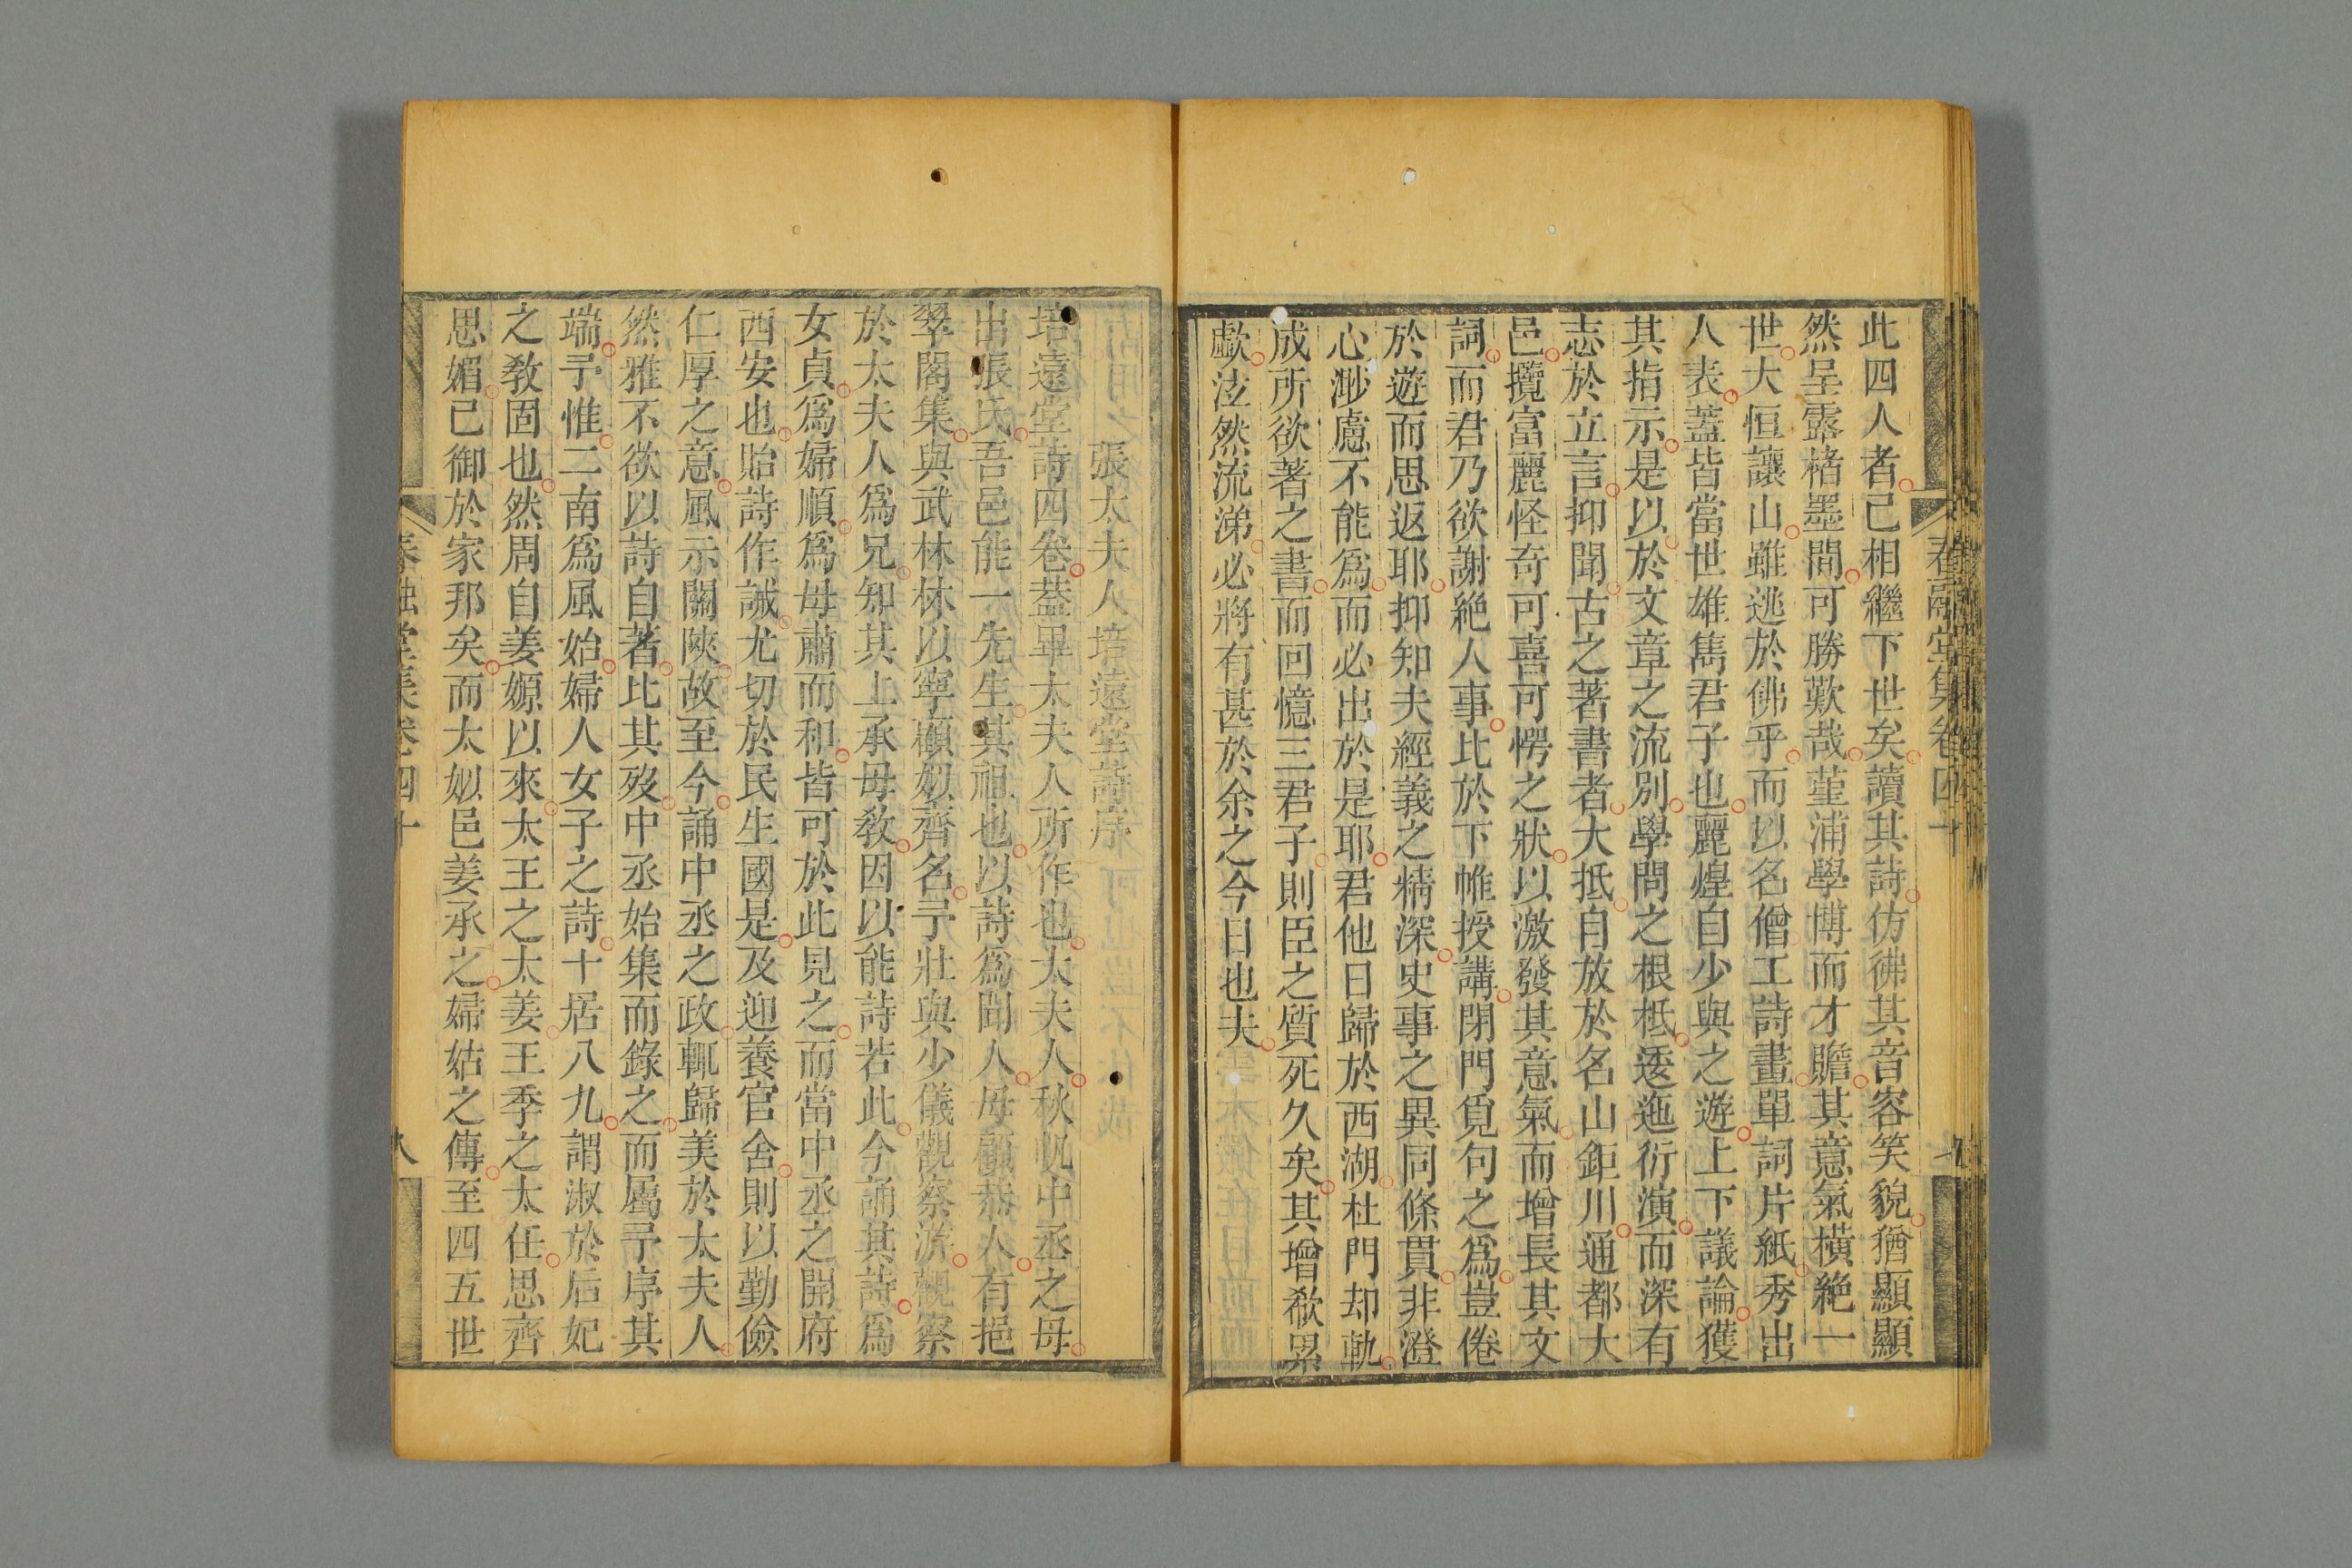 春融堂集卷四十
此四人者已相繼下世矣讀其詩仿彿其音容笑貌猶顯顯
然呈露楮墨間可勝歎哉菫浦學博而才贍其意氣橫絶一
世大恒讓山雖逃於佛乎而以名僧工詩畫單詞片紙秀出
人表蓋皆當世雄雋君子也麗煌自少與之遊上下議論獲
其指示是以於文章之流別學問之根柢逶迤衍演而深有
志於立言抑聞古之著書者大抵自放於名山鉅川通都大
邑攬富麗怪奇可喜可愕之狀以激發其意氣而增長其文
詞而君乃欲謝絶人事比於下帷授講閉門覓句之爲豈倦
於遊而思返耶抑知夫經義之精深史事之異同條貫非澄
心渺慮不能爲而必出於是耶君他日歸於西湖杜門却軌
成所欲著之書而回憶三君子則臣之質死久矣其增欷累
歔泫然流涕必將有甚於余之今日也夫
張太夫人培遠堂詩序
培遠堂詩四卷葢畢太夫人所作也太夫人秋帆中丞之母
出張氏吾邑能一先生其祖也以詩爲聞人母顧恭人有挹
翠閣集與武林林以寧顧姒齊名予壯與少儀觀察游觀察
於太夫人爲兄知其上承母敎因以能詩若此今誦其詩爲
女貞爲婦順爲母肅而和皆可於此見之而當中丞之開府
西安也貽詩作誡尤切於民生國是及迎養官舍則以勤儉
仁厚之意風示關陝故至今誦中丞之政輒歸美於太夫人
然雅不欲以詩自著比其歿中丞始集而錄之而屬予序其
端予惟二南爲風始婦人女子之詩十居八九謂淑於后妃
之敎固也然周自姜嫄以來太王之太姜王季之太任思齊
思媚已御於家邦矣而太姒邑姜承之婦姑之傳至四五世
春融堂集卷四十
八